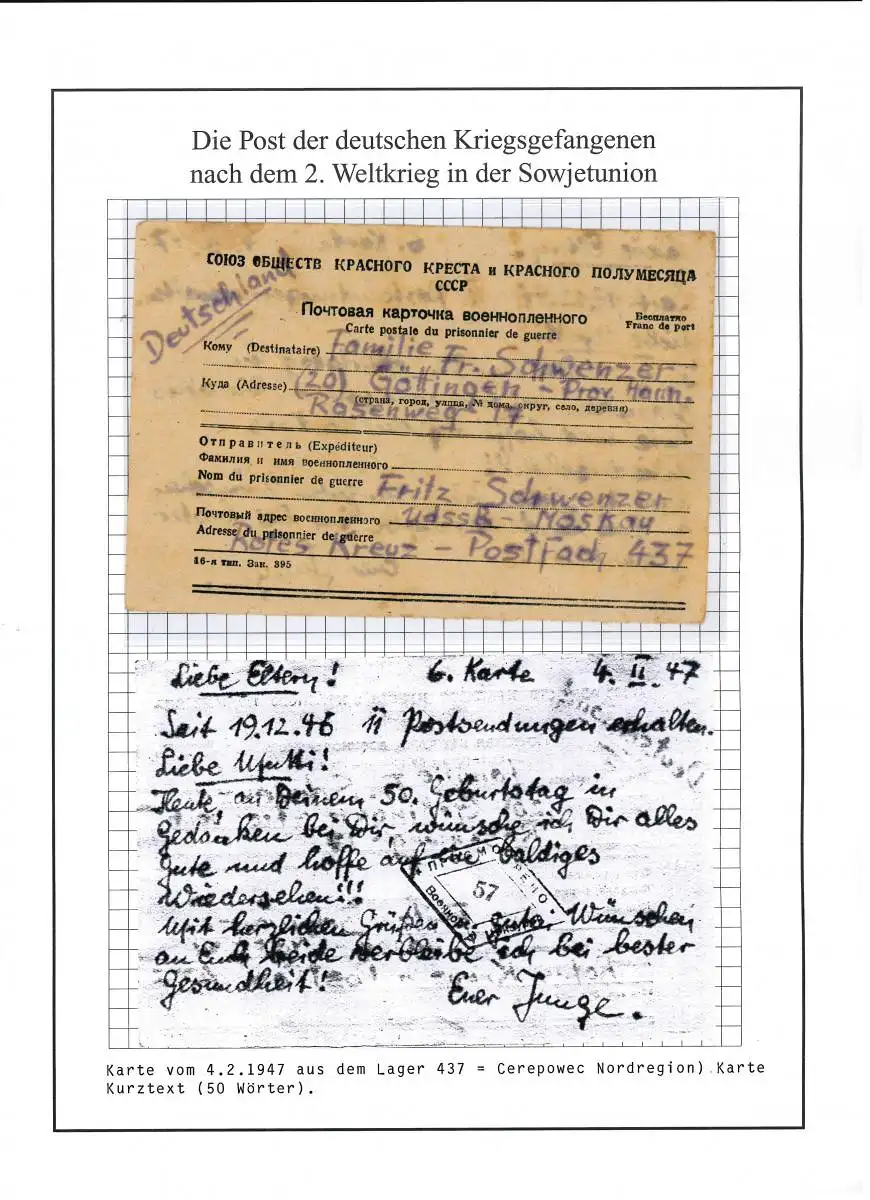 Die Post der deutschen Kriegsgefangenen
nach dem 2. Weltkrieg in der Sowjetunion
СОЮЗ ОБЩЕСТВ КРАСНОГО КРЕСТА и КРАСНОГО ПОЛУМЕСЯЦА
СССР
Deutschland
Почтовая карточка военнопленного
Бесплатно
Carte postale du prisonnier de guerre
Franc de port
Кому (Destinataire) Familie Fr. Schwenzer
Куда (Adresse) (20) Göttingen - Prov. Hann.
(страна, город, улица, № дома, округ, село, деревня)
Rosenweg 17
Отправитель (Expéditeur)
Фамилия и имя военнопленного
Nom du prisonnier de guerre Fritz Schwenzer
Почтовый адрес военнопленного UdSSR - Moskau
Adresse du prisonnier de guerre Rotes Kreuz - Postfach 437
16-я тип. Зак. 395
Liebe Eltern! 6. Karte 4. II. 47
Seit 19.12.46 11 Postsendungen erhalten.
Liebe Mutti!
Heute, an Deinem 50. Geburtstag in
Gedanken bei Dir, wünsche ich Dir alles
Gute und hoffe auf ein baldiges
Wiedersehen!!!
57
Mit herzlichen Grüßen guten Wünschen
an Euch beide verbleibe ich bei bester
Gesundheit!
Euer Junge.
Karte vom 4.2.1947 aus dem Lager 437 = Cerepowec Nordregion) Karte
Kurztext (50 Wörter).